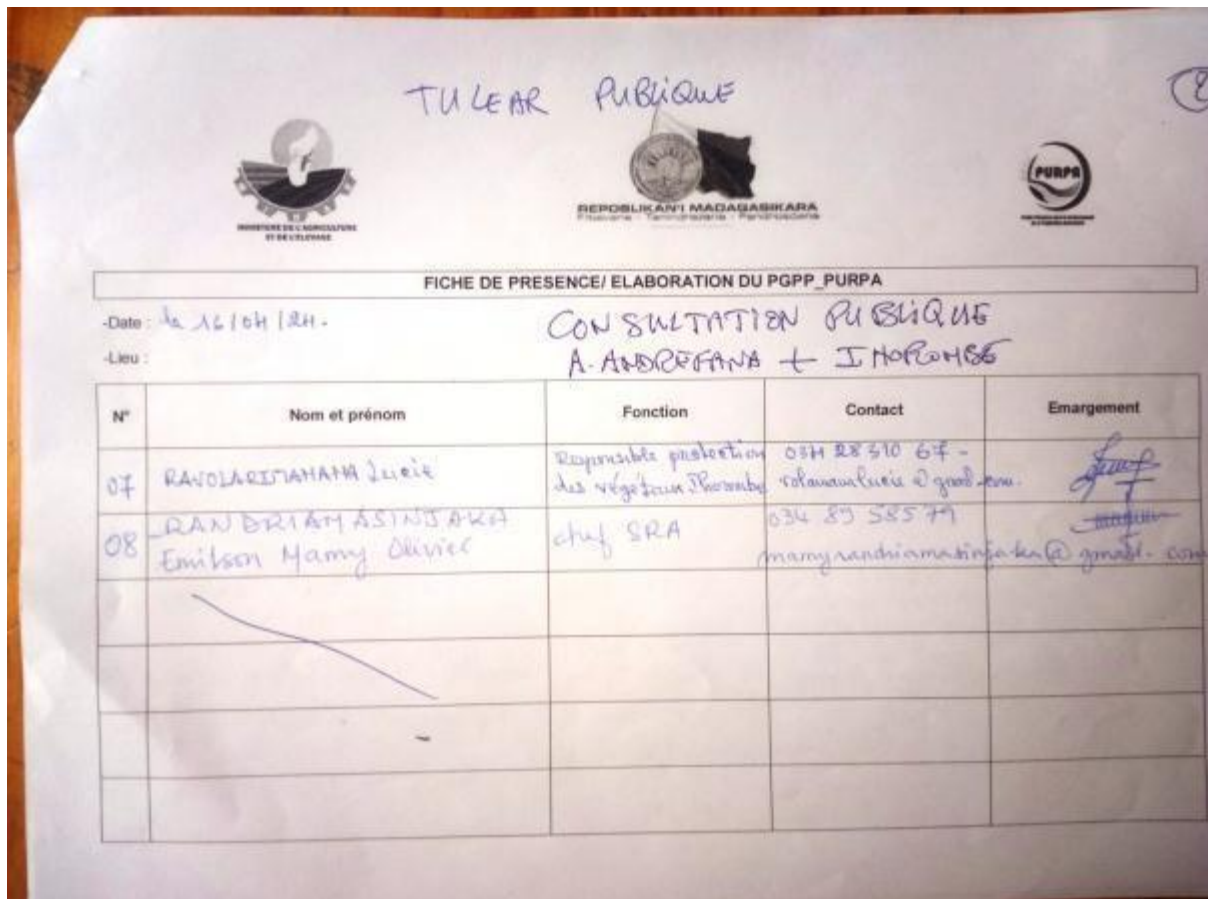 TULEAR PUBLIQUE
MINISTERE DE L'AGRICULTURE
ET DE L'ELEVAGE
REPOBLIKAN'I MADAGASIKARA
Fitiavana - Tanindrazana - Fandrosoana
PURPA
FICHE DE PRESENCE/ ELABORATION DU PGPP_PURPA
-Date : le 16/04/24.
CONSULTATION PUBLIQUE
-Lieu :
A. ANDREFANA + IHOROMBE
N° Nom et prénom Fonction Contact Emargement
07 RAVOLARIMANANA Lucie Responsable protection des végétaux Ihorombe 034 28 310 67 -
08 RANDRIAMASINJAKA Emilson Mamy Olivier chef SRA 034 89 585 79
mamyrandriamasinjaka@gmail.com